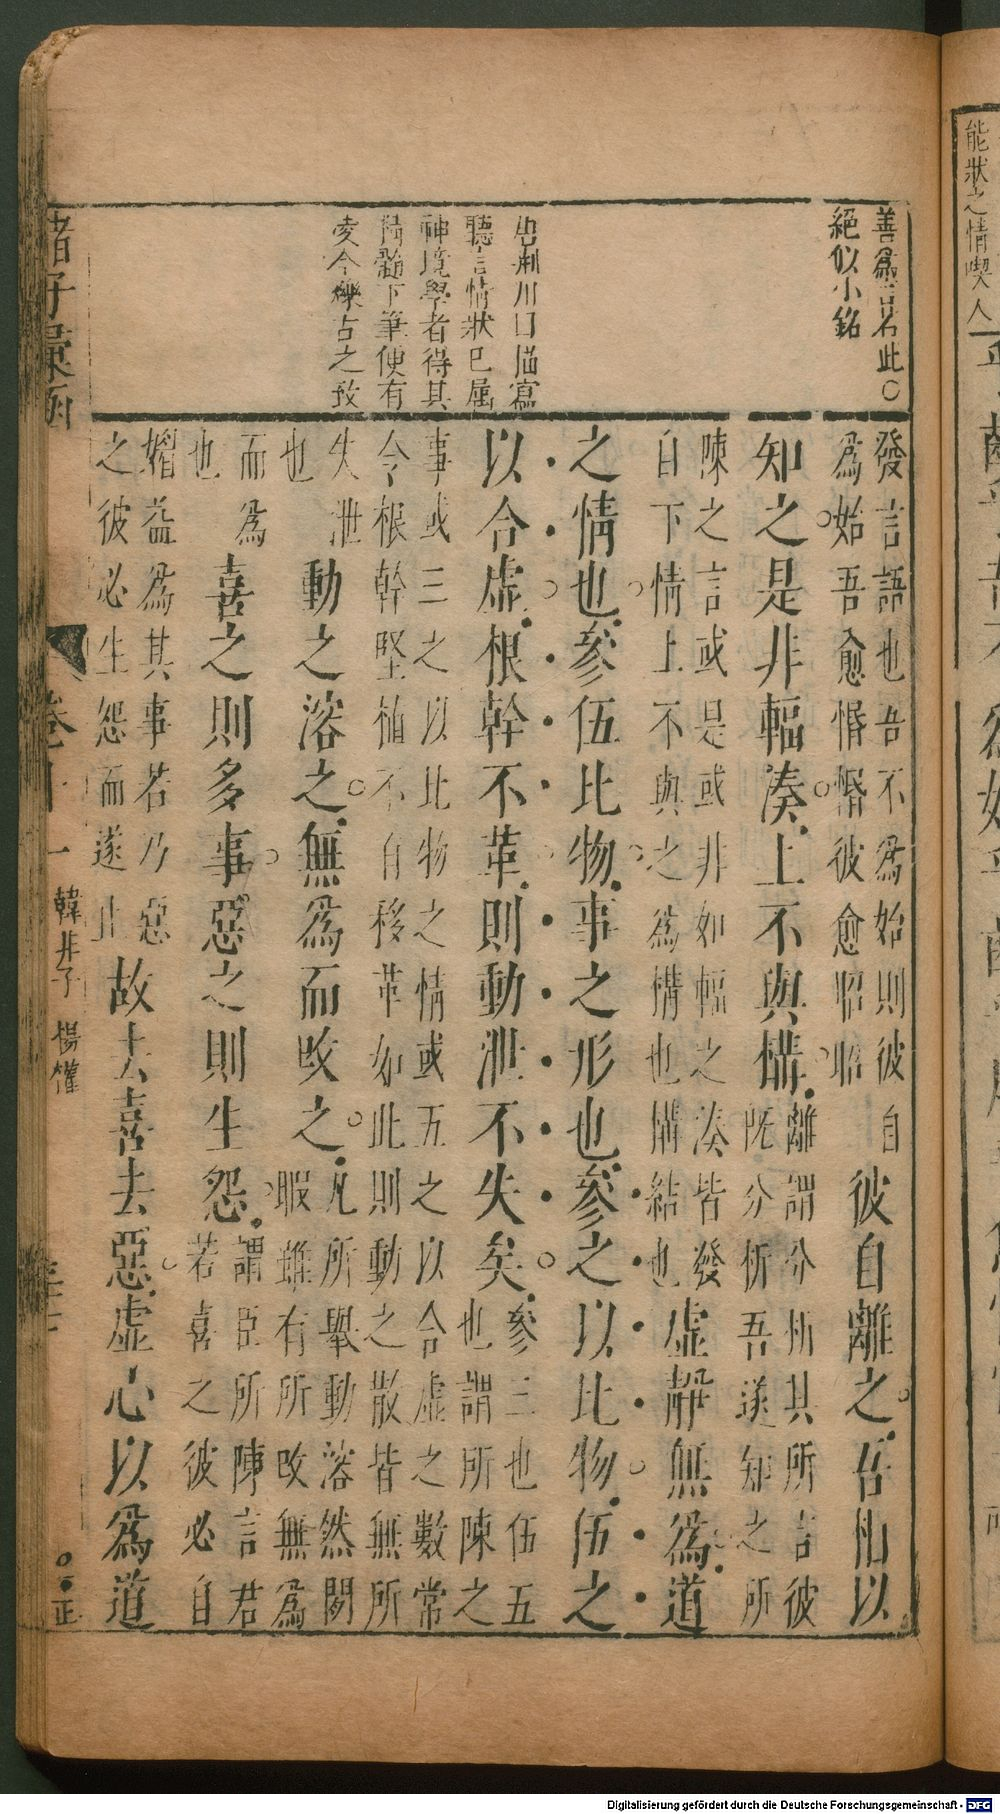 能狀之情喫人
善爲言名此○
絕似小銘
荆川曰描寫
聽言情狀已屬
神境學者得其
精髓下筆便有
凌今爍古之致
發言語也吾不爲始則彼自
爲始吾愈惛惛彼愈昭昭
彼自離之吾因以
知之是非輻湊上不與構
離謂分析其所言彼
既分析吾遂知之所
陳之言或是或非如輻之湊皆發
自下情上不與之爲構也構結也
虛靜無爲道
之情也參伍比物事之形也參之以比物伍之
以合虛根幹不革則動泄不失矣
參三也伍五
也謂所陳之
事或三之以比物之情或五之以合虛之數常
令根幹堅植不自移革如此則動之散皆無所
失泄
也
動之溶之無爲而攺之
凡所舉動溶然閑
暇雖有所攺無爲
而爲
也
喜之則多事惡之則生怨
謂臣所陳言君
若喜之彼必自
媢益爲其事若乃惡
之彼必生怨而遂止
故去喜去惡虛心以爲道
諸子彙函
卷十一
韓非子 楊權
正
Digitalisierung gefördert durch die Deutsche Forschungsgemeinschaft - DFG